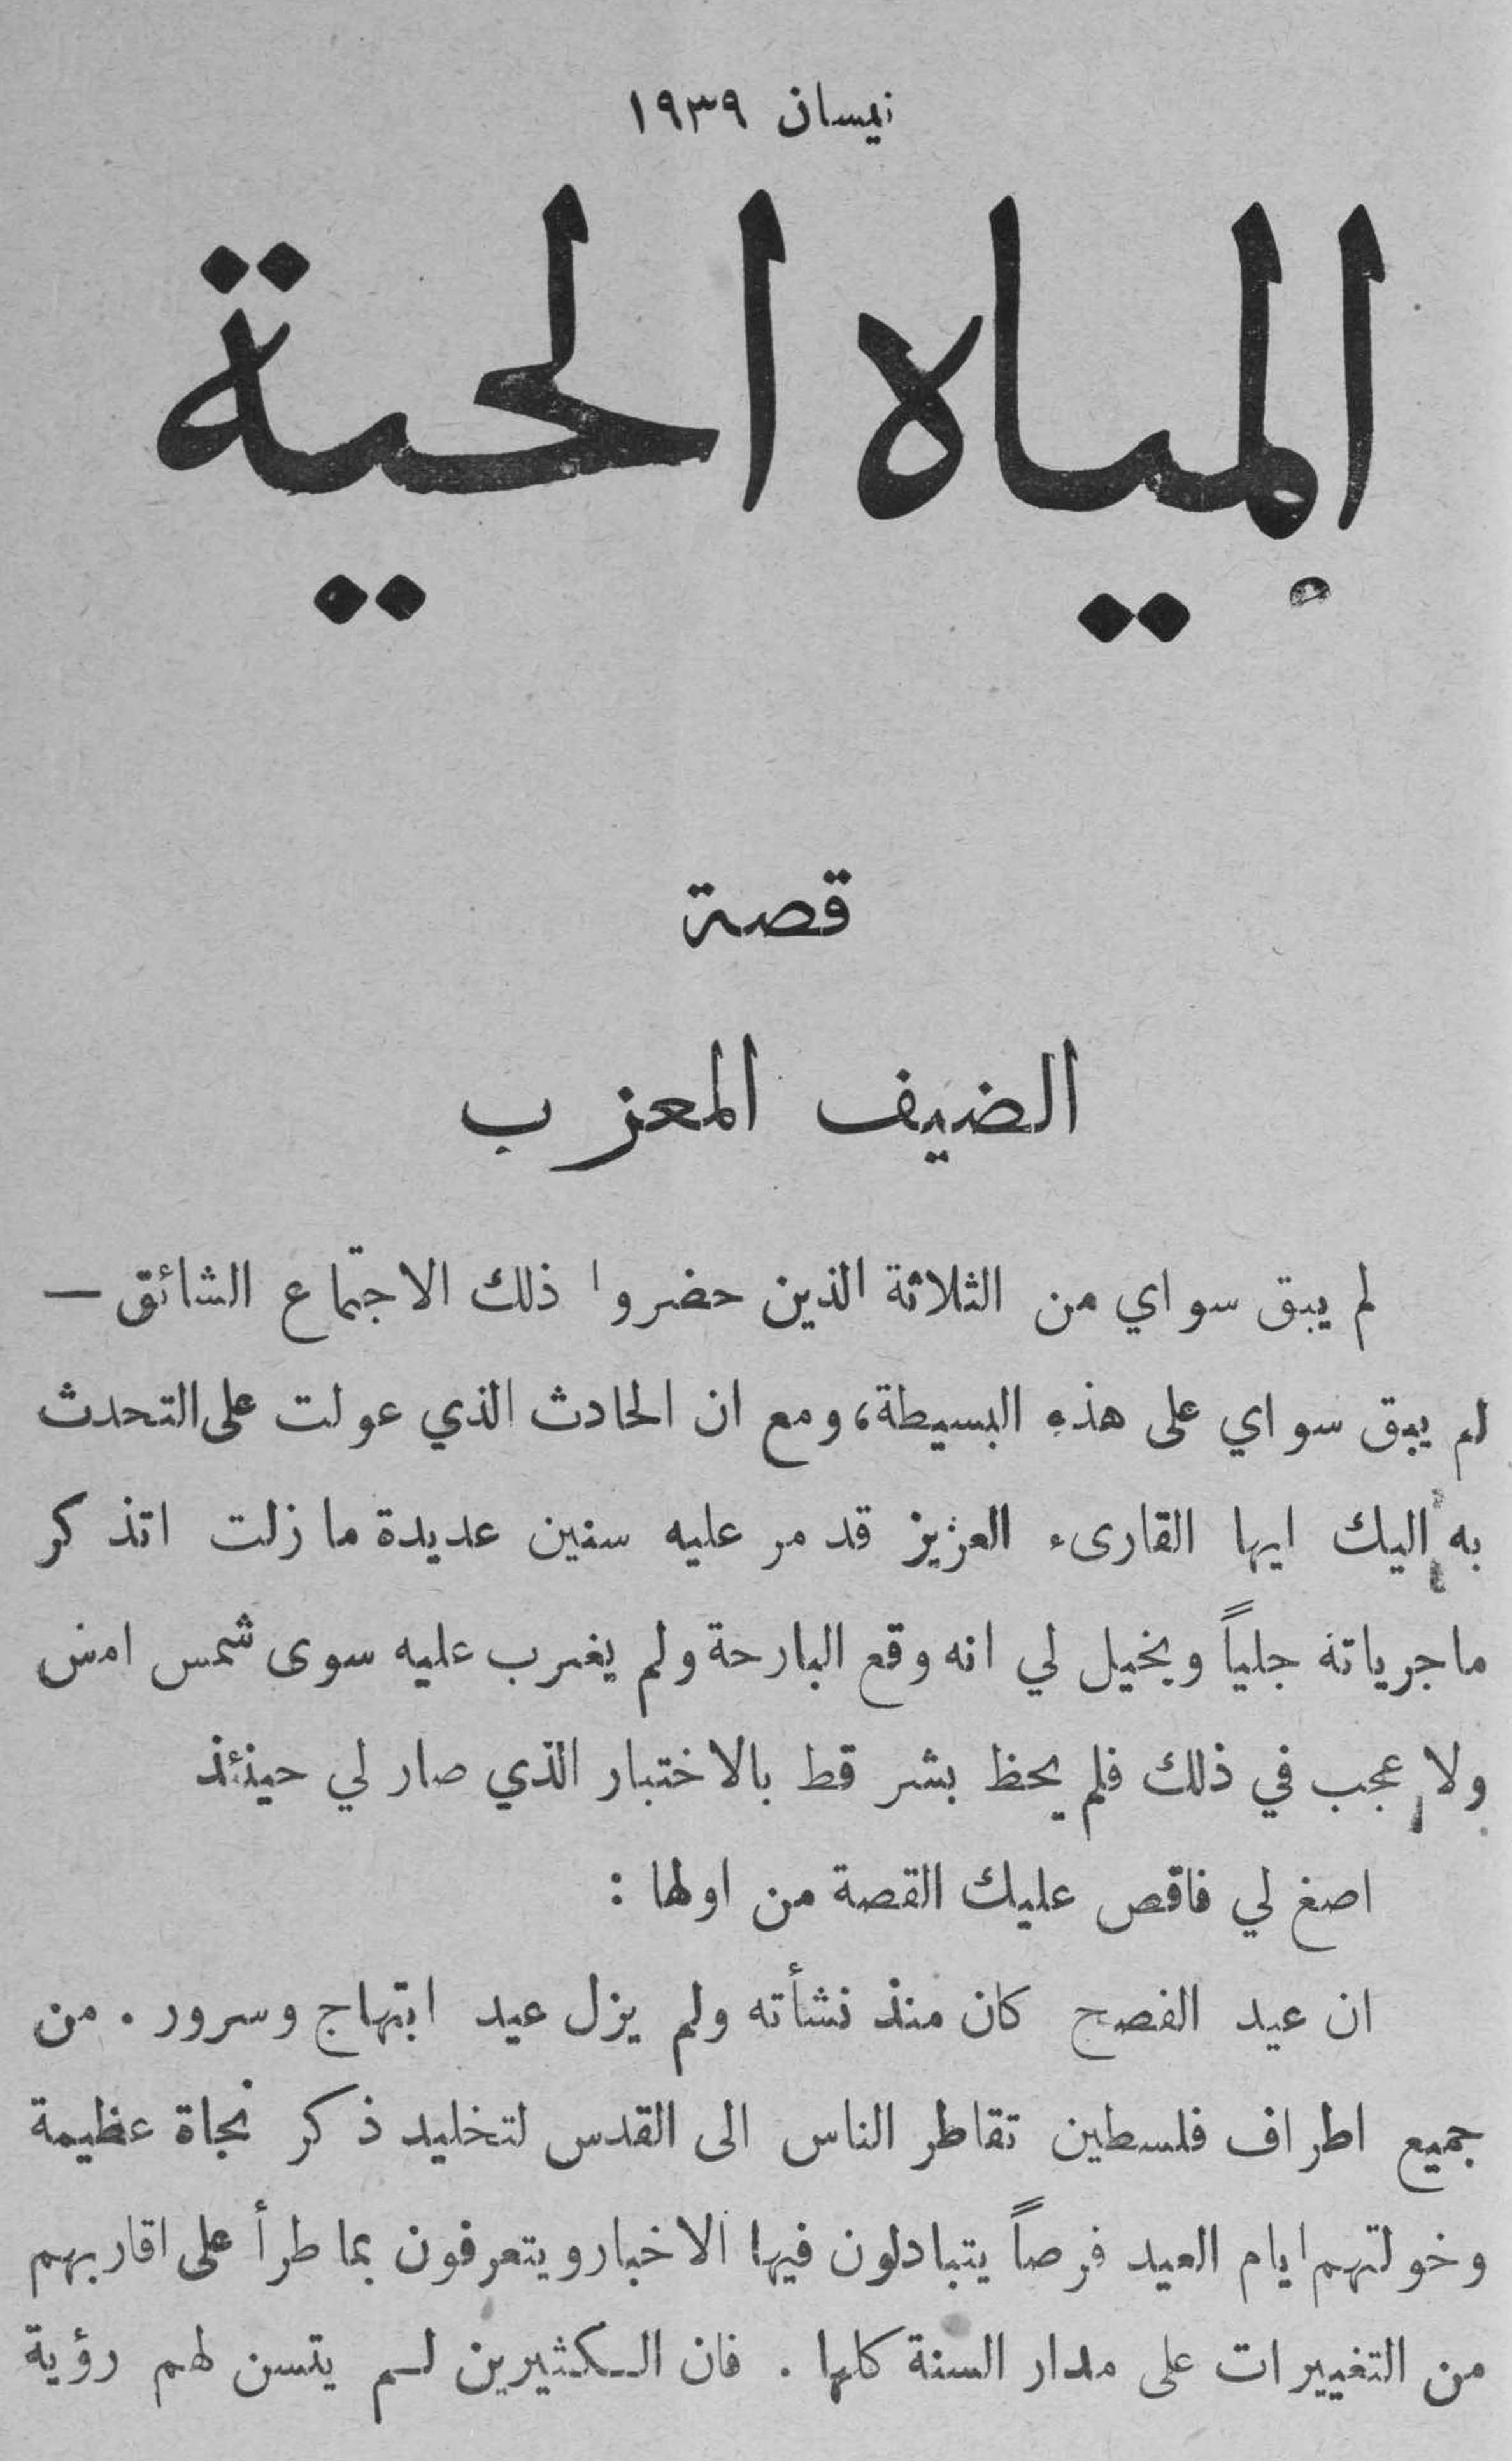 نيسان ١٩٣٩
المياه الحية
قصة
الضيف المعزب
لم يبق سواي من الثلاثة الذين حضروا ذلك الاجتماع الشائق —
لم يبق سواي على هذه البسيطة، ومع ان الحادث الذي عولت على التحدث
به اليك ايها القارىء العزيز قد مر عليه سنين عديدة ما زلت اتذكر
ماجرياته جلياً ويخيل لي انه وقع البارحة ولم يغرب عليه سوى شمس امس
ولا عجب في ذلك فلم يحظ بشر قط بالاختبار الذي صار لي حينئذ
اصغ لي فاقص عليك القصة من اولها :
ان عيد الفصح كان منذ نشأته ولم يزل عيد ابتهاج وسرور . من
جميع اطراف فلسطين تقاطر الناس الى القدس لتخليد ذكر نجاة عظيمة
وخولتهم ايام العيد فرصاً يتبادلون فيها الاخبار ويتعرفون بما طرأ على اقاربهم
من التغييرات على مدار السنة كلها . فان الكثيرين لم يتسن لهم رؤية